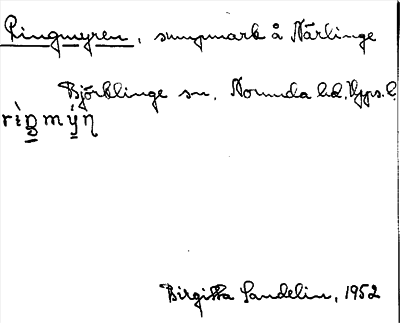 Ringmyren, sumpmark å Närlinge
Björklinge sn, Norunda hd, Upps. l.
rìŋmýn̥
Birgitta Sandelin, 1952